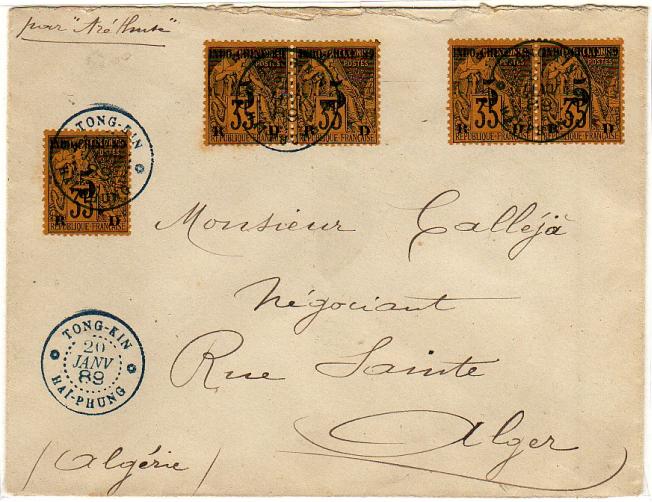 par "Aréthuse"
INDO-CHINE 89 INDO-CHINE 89 INDO-CHINE 89 INDO-CHINE 89
POSTES POSTES POSTES POSTES
5 5 5 5
35 35 35 35
R D R D R D R D
REPUBLIQUE FRANÇAISE REPUBLIQUE FRANÇAISE REPUBLIQUE FRANÇAISE REPUBLIQUE FRANÇAISE
TONG-KIN
INDO-CHINE 89
5
35
R D
REPUBLIQUE FRANÇAISE
Monsieur Calléjà
Négociant
TONG-KIN
20
JANV
89
HAÏ-PHUNG
Rue Sainte
Alger
(Algérie)